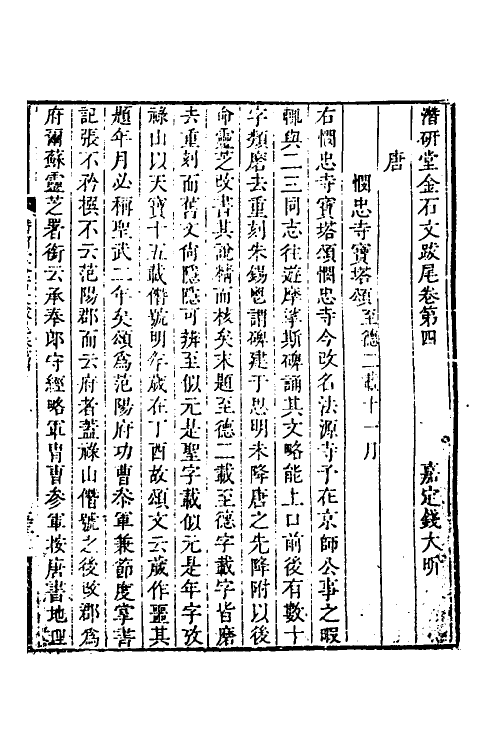 潛研堂金石文跋尾卷第四　嘉定錢大昕
唐
憫忠寺寶塔頌至德二載十一月
右憫忠寺寶塔頌憫忠寺今改名法源寺予在京師公事之暇
輒與二三同志往遊摩挲斯碑誦其文略能上口前後有數十
字類磨去重刻朱錫鬯謂碑建于思明未降唐之先降附以後
命靈芝改書其說精而核矣末題至德二載至德字載字皆磨
去重刻而舊文尙隱隱可辨至似元是聖字載似元是年字攷
祿山以天寶十五載僭號明年歲在丁酉故頌文云歲作噩其
題年月必稱聖武二年矣頌爲范陽府功曹叅軍兼節度掌書
記張不矜撰不云范陽郡而云府者蓋祿山僭號之後改郡爲
府爾蘇靈芝署銜云承奉郎守經略軍胄曹參軍按唐書地理